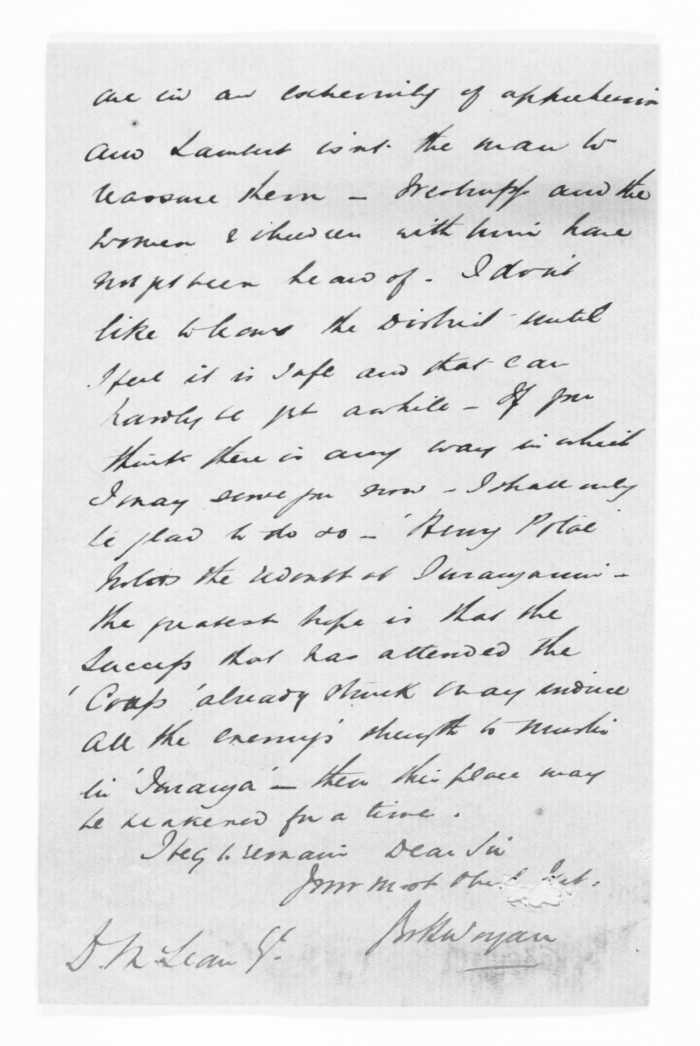 are in an extremity of apprehension
and Lambert isn't the man to
reassure them – Westrupp and the
women & children with him have
not yet been heard of. I don't
like to leave the District until
I feel it is safe and that can
hardly be yet awhile – If you
think there is any way in which
I may serve you now – I shall only
be glad to do so – 'Henry Potae'
holds the redoubt at Turanganui –
the greatest hope is that the
success that has attended the
'Coups' already struck may induce
all the enemy's strength to muster
in 'Turanga' – then this place may
be weakened for a time.
I beg to remain Dear Sir
Your most Obed
D. McLean Esq.